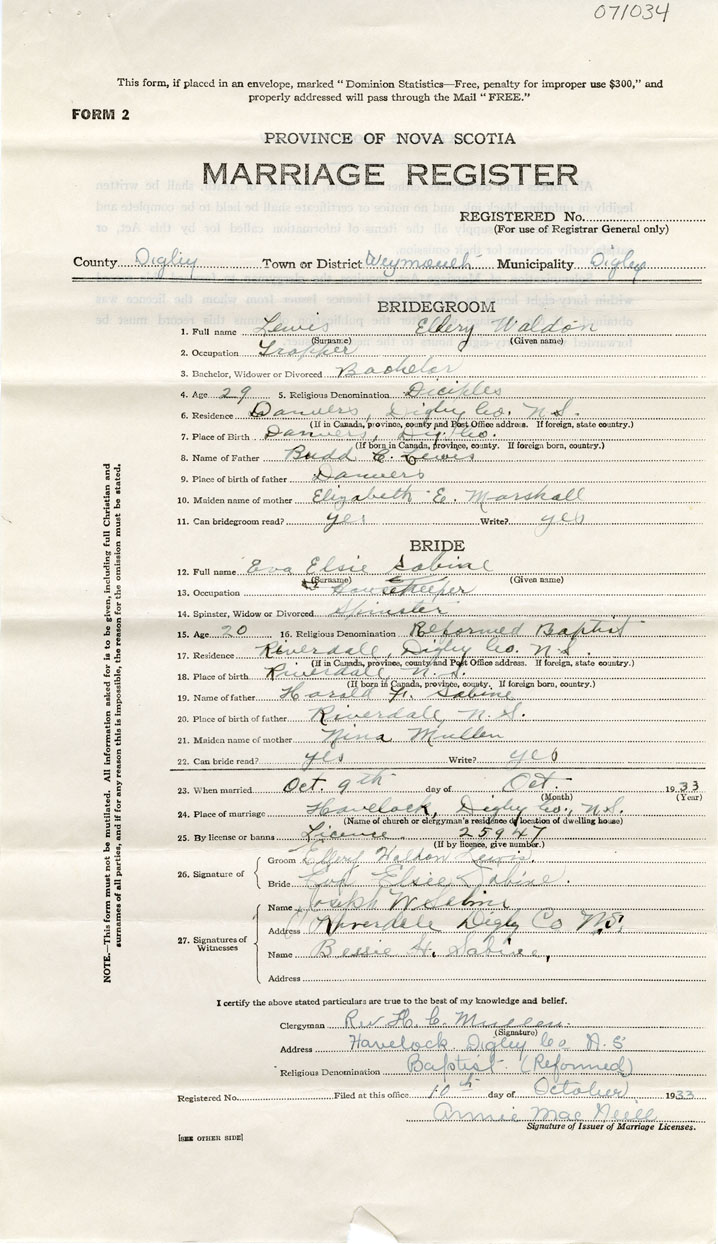 071034
This form, if placed in an envelope, marked "Dominion Statistics—Free, penalty for improper use $300," and
properly addressed will pass through the Mail "FREE."
FORM 2
PROVINCE OF NOVA SCOTIA
MARRIAGE REGISTER
REGISTERED No.
(For use of Registrar General only)
County Digby Town or District Weymouth Municipality Digby
BRIDEGROOM
1. Full name Lewis Ellery Waldon
(Surname) (Given name)
2. Occupation Trapper
3. Bachelor, Widower or Divorced Bachelor
4. Age 29 5. Religious Denomination Diciples
6. Residence Danvers, Digby Co. N.S.
(If in Canada, province, county and Post Office address. If foreign, state country.)
7. Place of Birth Danvers, Dig. Co.
(If born in Canada, province, county. If foreign born, country.)
8. Name of Father Budd C. Lewis
9. Place of birth of father Danvers
10. Maiden name of mother Elizabeth E. Marshall
11. Can bridegroom read? yes Write? yes
BRIDE
12. Full name Eva Elsie Sabine
(Surname) (Given name)
13. Occupation Housekeeper
14. Spinster, Widow or Divorced Spinster
15. Age 20 16. Religious Denomination Reformed Baptist
17. Residence Riverdale, Digby Co. N.S.
(If in Canada, province, county and Post Office address. If foreign, state country.)
18. Place of birth Riverdale N.S.
(If born in Canada, province, county. If foreign born, country.)
19. Name of father Harold Sabine
20. Place of birth of father Riverdale, N.S.
21. Maiden name of mother Nina Mullen
22. Can bride read? yes Write? yes
23. When married Oct. 9th day of Oct. 1933
(Month) (Year)
24. Place of marriage Havelock, Digby Co., N.S.
(Name of church or clergyman's residence or location of dwelling house)
25. By license or banns License 25947
(If by licence, give number.)
26. Signature of
Groom Ellery Waldon Lewis.
Bride Eva Elsie Sabine.
27. Signatures of Witnesses
Name Joseph W Sabine
Address Riverdale Digby Co N.S.
Name Bessie H. Sabine,
Address
I certify the above stated particulars are true to the best of my knowledge and belief.
Clergyman Rev H. C. Mullen.
(Signature)
Address Havelock Digby Co N.S
Religious Denomination Baptist (Reformed)
Registered No. Filed at this office 10th day of October 1933
Annie Mac Neill
Signature of Issuer of Marriage Licenses.
[SEE OTHER SIDE]
NOTE.—This form must not be mutilated. All information asked for is to be given, including full Christian and
surnames of all parties, and if for any reason this is impossible, the reason for the omission must be stated.